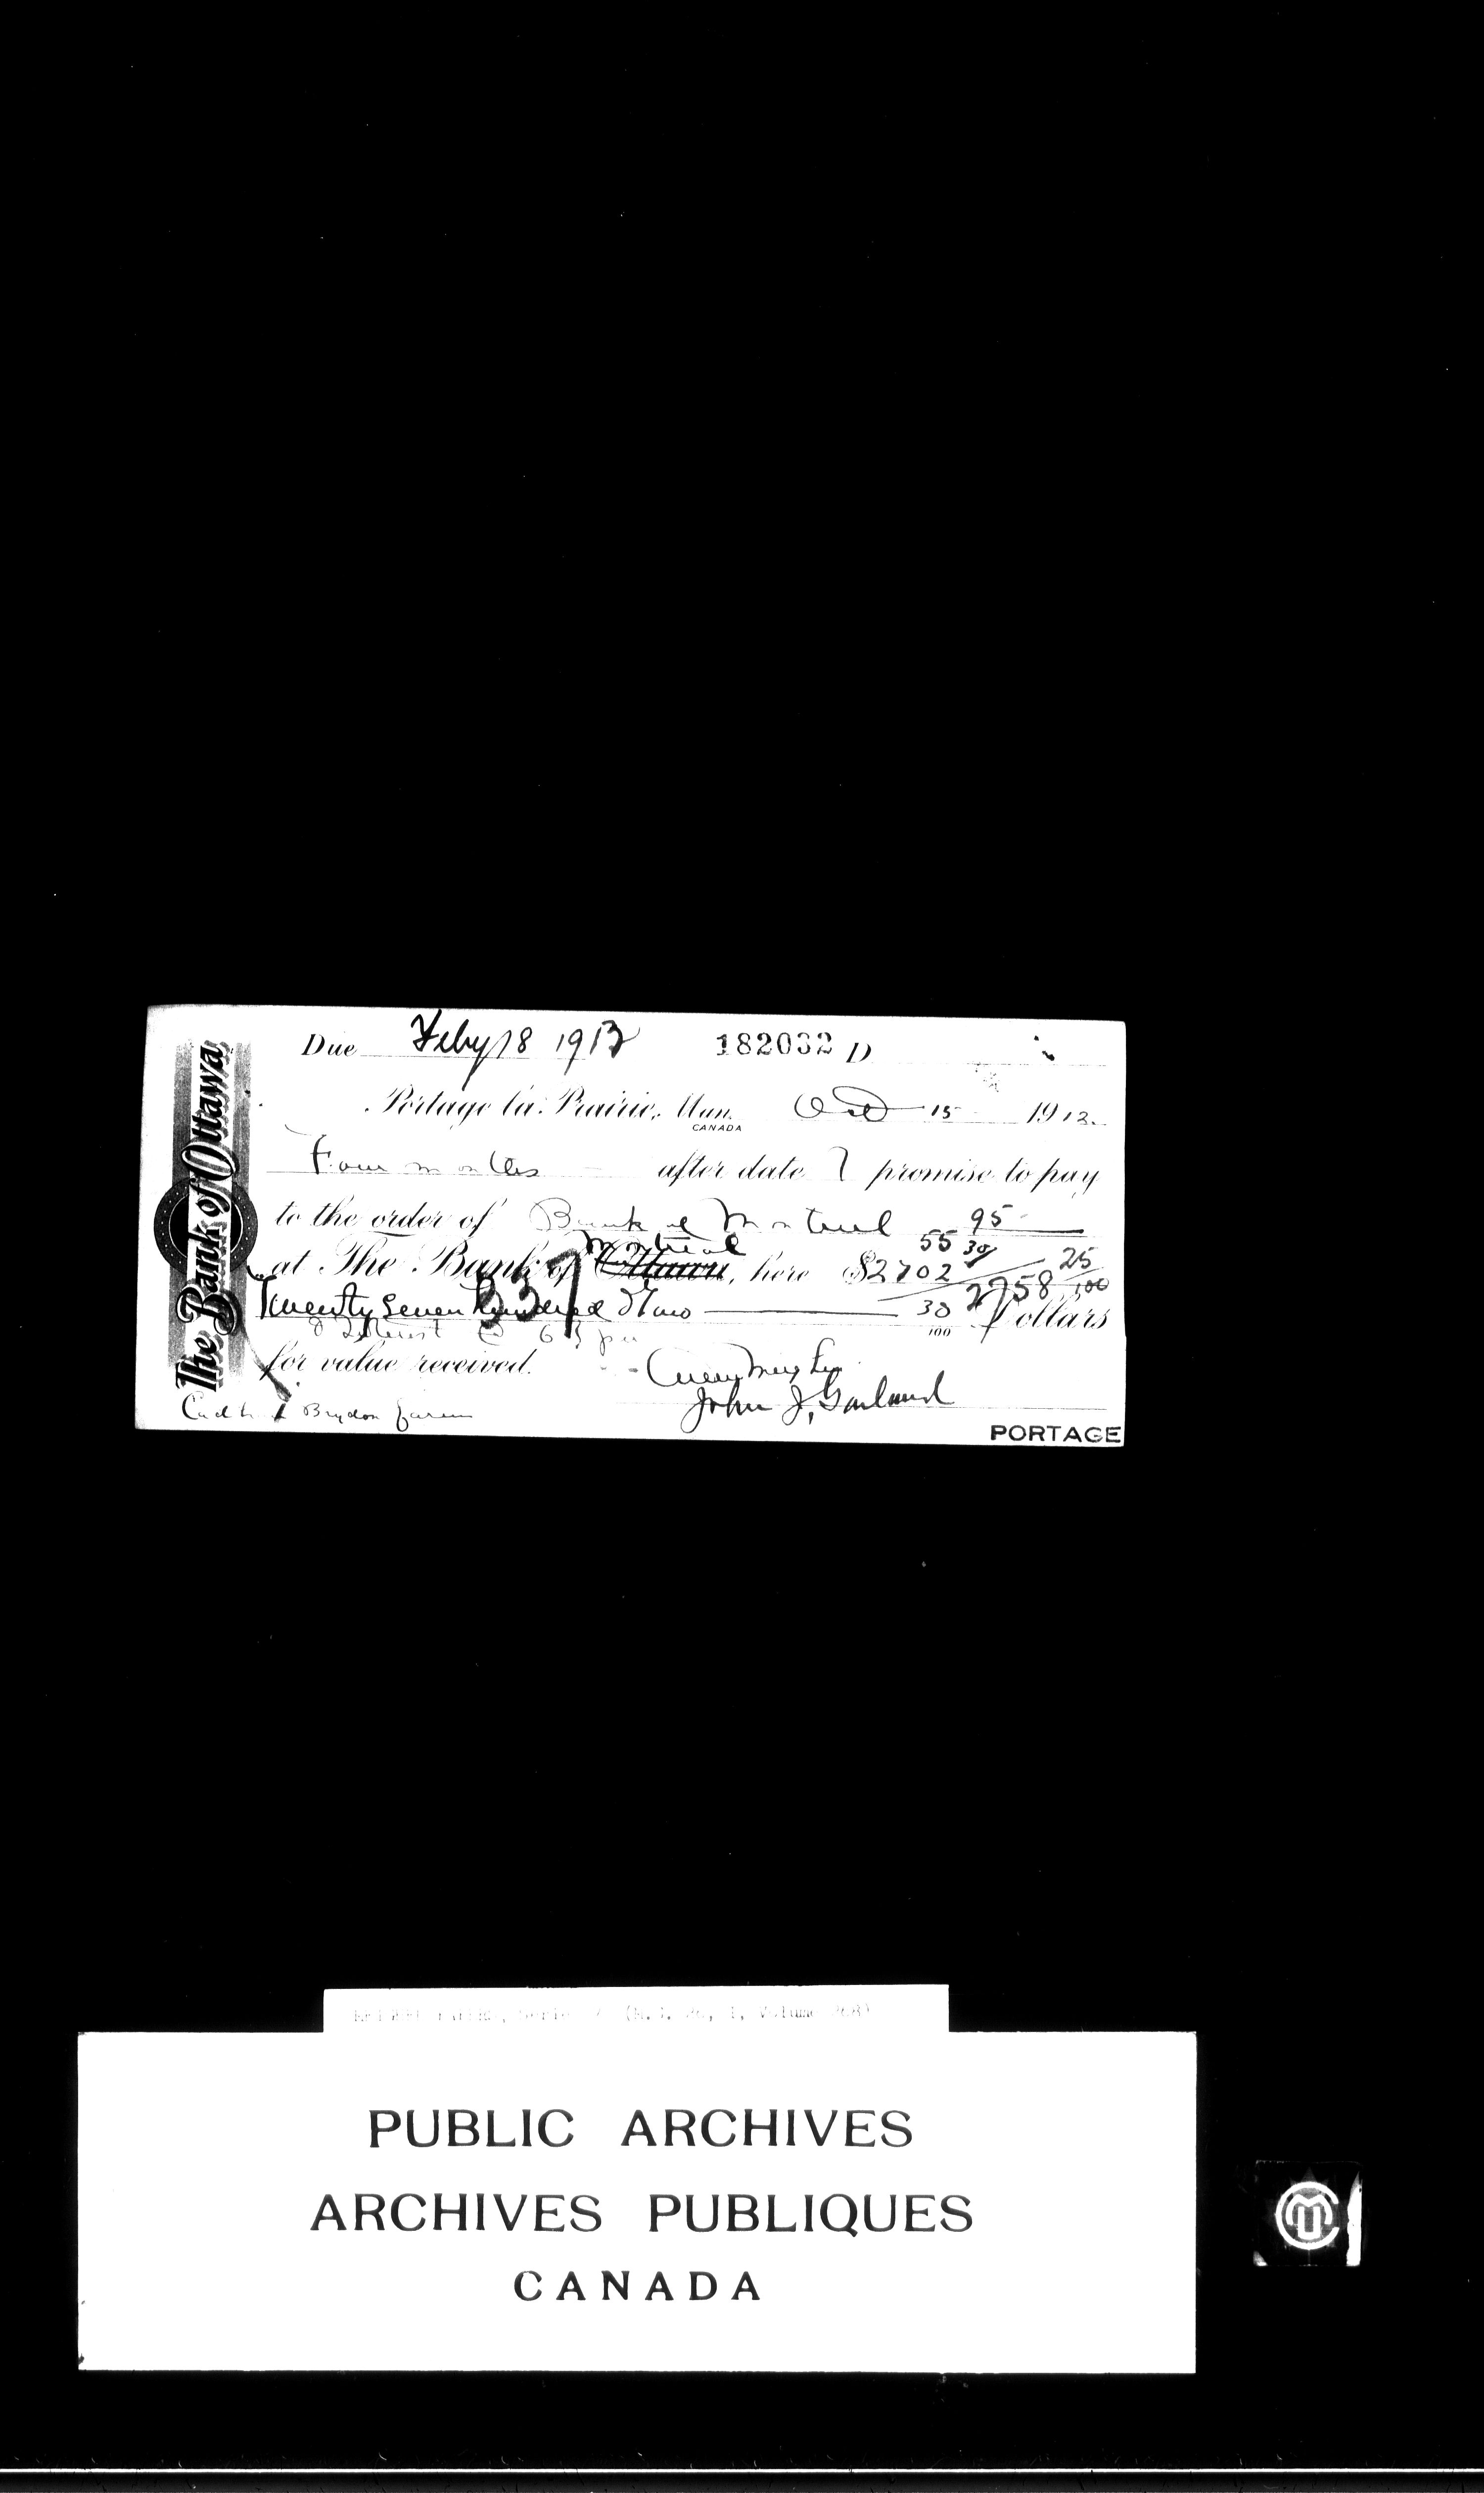 The Bank of Ottawa
Due Feby 18 1913 182032 D
Portage la Prairie, Man. Oct 15 1912.
CANADA
Four months after date I promise to pay
to the order of Bank of Montreal
55 95
Montreal
at The Bank of Ottawa, here $2702 30 2758 25/100
Twenty seven hundred & Two 30/100 Dollars
337
& Interest @ 6
for value received.
John J, Garland
Brydon farm
PORTAGE
PUBLIC ARCHIVES
ARCHIVES PUBLIQUES
CANADA